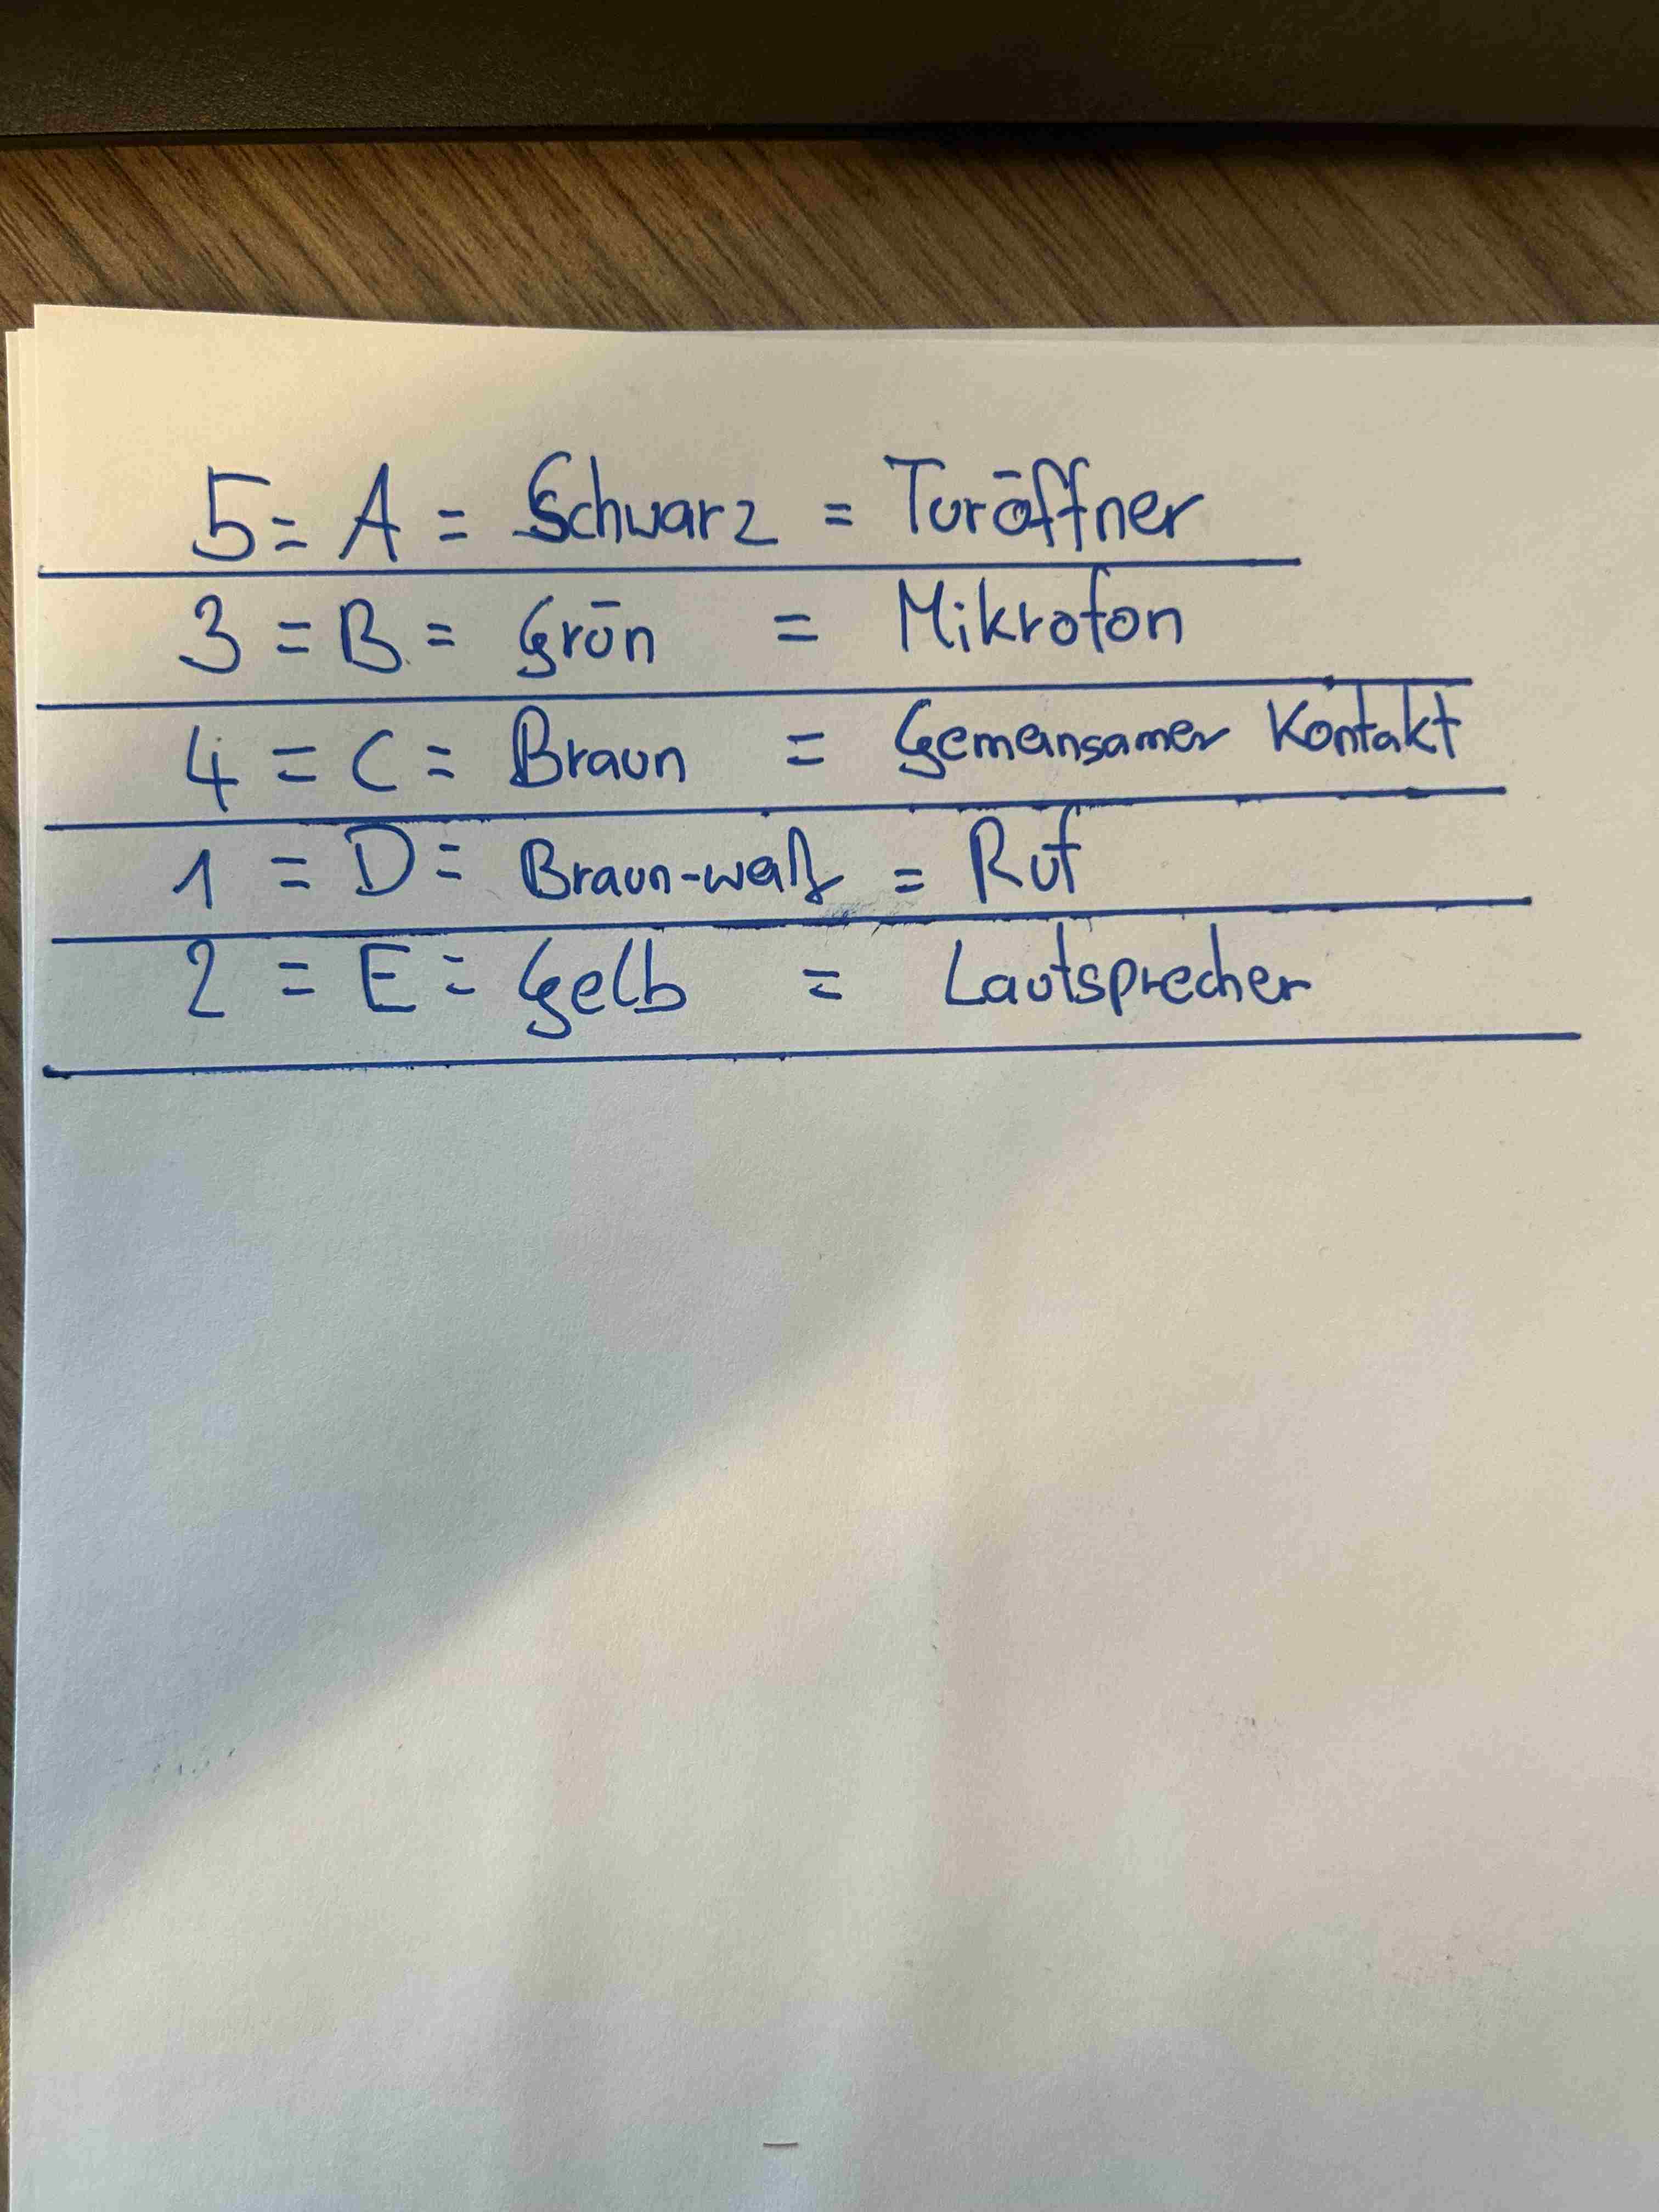 5 = A = Schwarz = Türöffner
3 = B = Grün = Mikrofon
4 = C = Braun = Gemeinsamer Kontakt
1 = D = Braun-weiß = Ruf
2 = E = Gelb = Lautsprecher